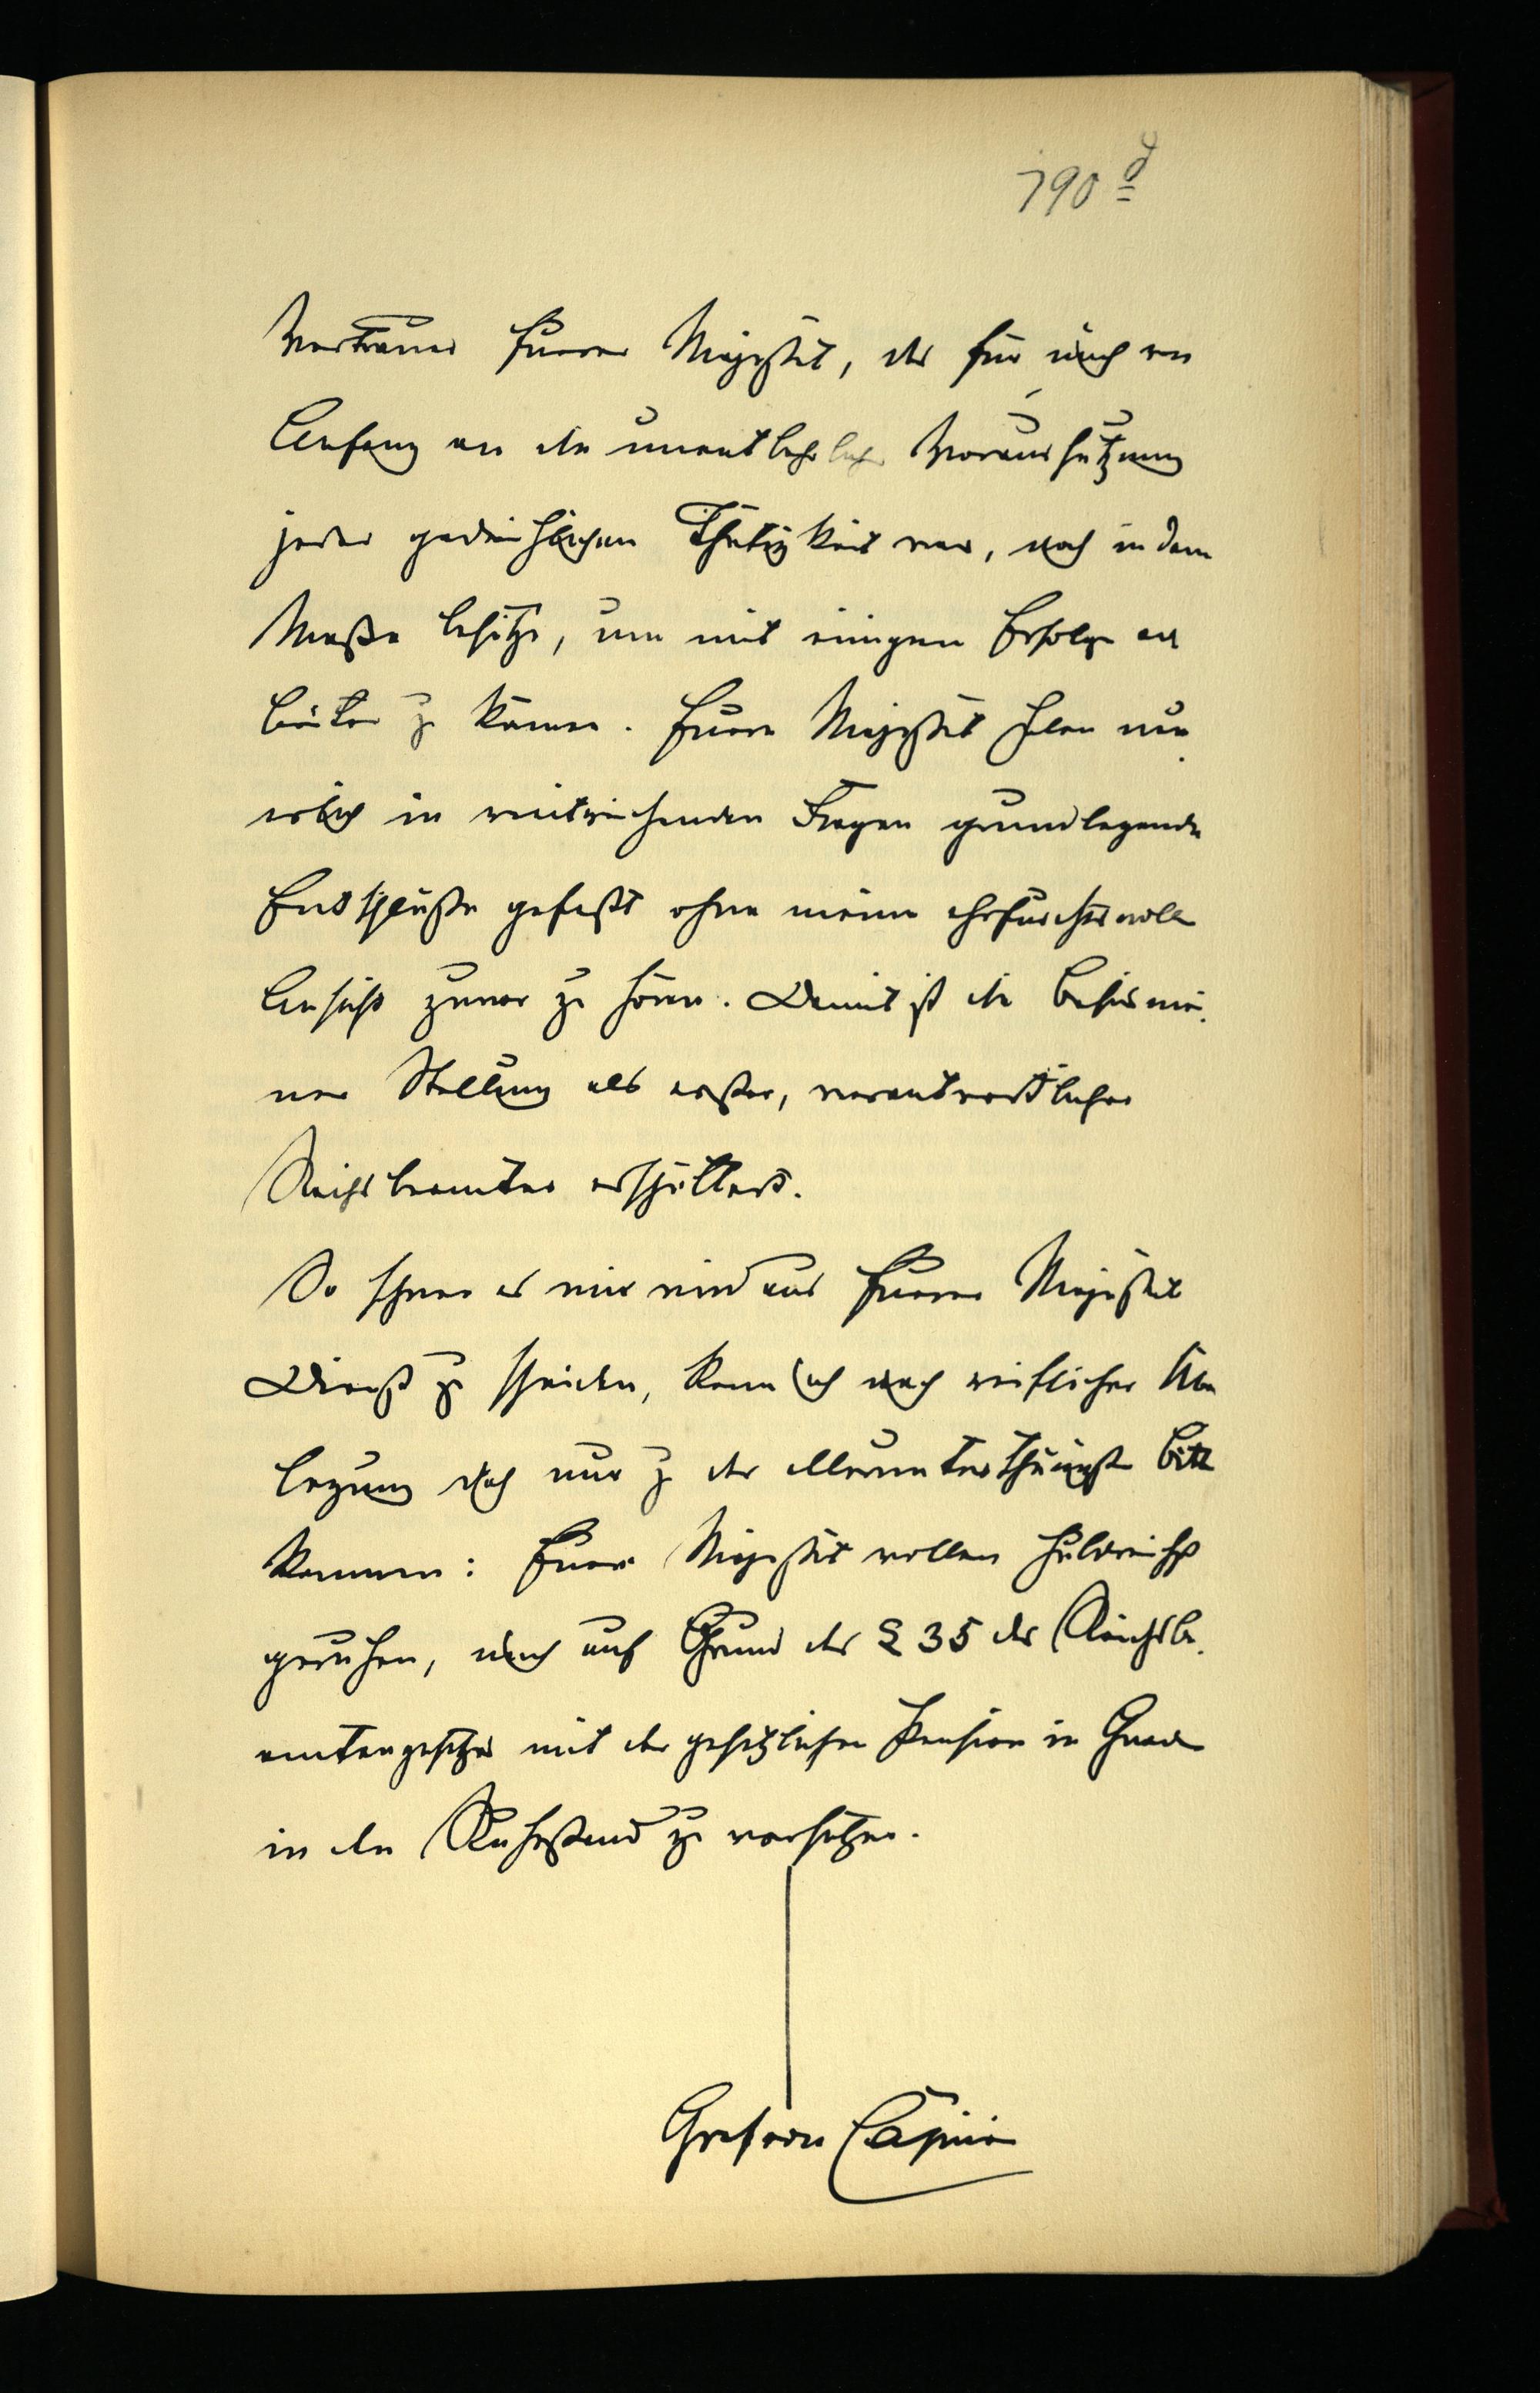 790 d
Vertrauen Euerer Majestät, das für mich von
Anfang an die unentbehrliche Voraussetzung
jeder gedeihlichen Thätigkeit war, noch in dem
Maße besitze, um mit einigem Erfolge ar
beiten zu können. Euere Majestät haben neu
erlich in weitreichenden Fragen grundlegende
Entschlüße gefaßt ohne meine ehrfurchtsvolle
Ansicht zuvor zu hören. Damit ist die Basis mei-
ner Stellung als erster, verantwortlicher
Reichsbeamter erschüttert.
So schwer es mir wird aus Euerer Majestät
Dienst zu scheiden, kann ich nach reiflicher Über
legung doch nur zu der allerunterthänigsten Bitte
kommen: Euere Majestät wollen huldreichst
geruhen, mich auf Grund des § 35 des Reichsbe-
amtengesetzes mit der gesetzlichen Pension in Gnaden
in den Ruhestand zu versetzen.
Graf von Caprivi